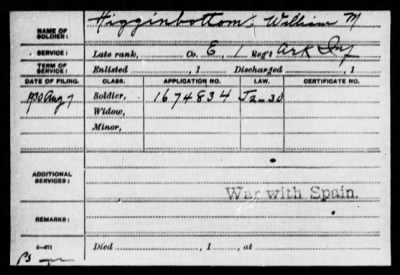 NAME OF SOLDIER: Higginbottom, William M
SERVICE: Late rank, Co. E, 1 Reg't Ark Inf
TERM OF SERVICE: Enlisted , 1 Discharged , 1
DATE OF FILING. CLASS. APPLICATION NO. LAW. CERTIFICATE NO.
1930 Aug 7 Soldier, 1674834 J2-30
Widow,
Minor,
ADDITIONAL SERVICES:
War with Spain.
REMARKS:
Died , 1 , at